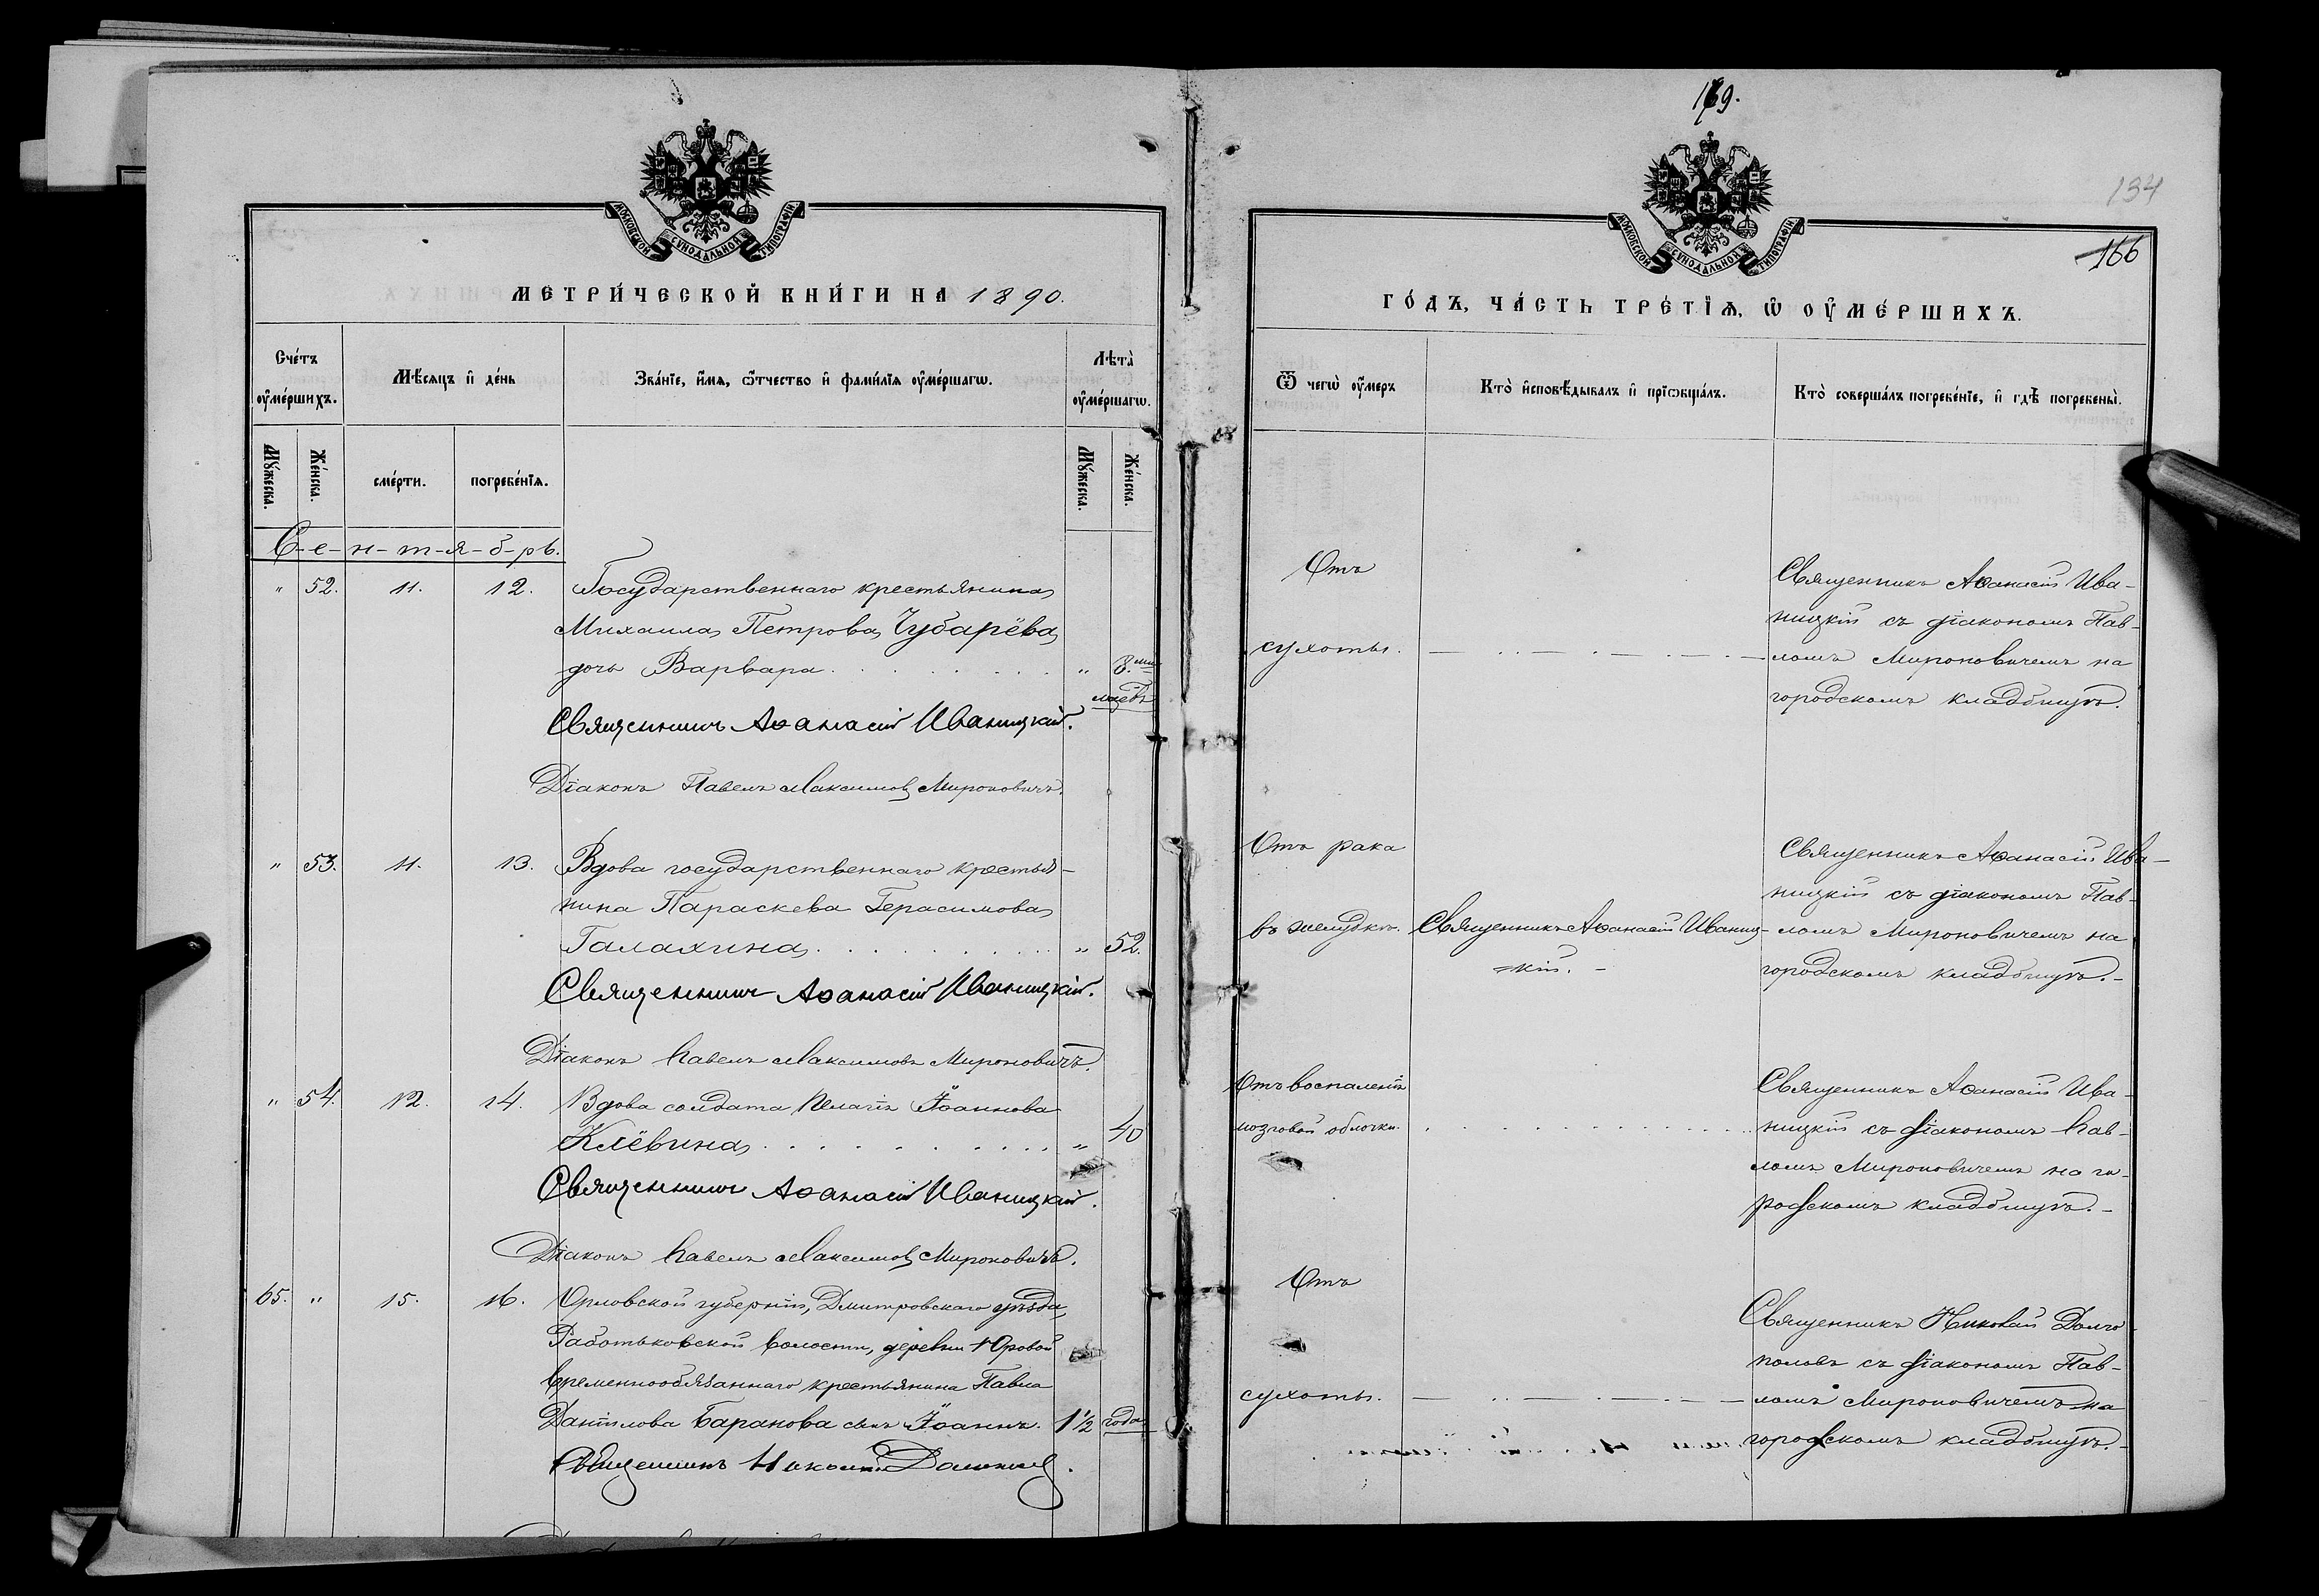 МОСКОВСКОЙ СѴНОДАЛЬНОЙ ТИПОГРАФІИ
МЕТРИ́ЧЕСКОЙ КНИ́ГИ НА 1890.
Сче́тъ ᲂу҆ме́ршихъ.
Мѣ́сяцъ и҆ де́нь
Зва́нїе, и҆́мѧ, ѻ҆́тчество и҆ фами́лїѧ ᲂу҆ме́ршагѡ.
Лѣ́та ᲂу҆ме́ршагѡ.
Мꙋ́жеска.
Же́нска.
сме́рти.
погребе́нїѧ.
Мꙋ́жеска.
Же́нска.
С-е-н-т-я-б-рь.
" 52. 11. 12. Государственнаго крестьянина
Михаила Петрова Чубарёва
дочь Варвара . . . . . . . " 8.ми
мцевъ
Священникъ Аѳанасій Иваницкій.
Діаконъ Павелъ Максимовъ Мироновичъ.
" 53. 11. 13. Вдова государственнаго крестья-
нина Параскева Герасимова
Галахина . . . . . . . " 52.
Священникъ Аѳанасій Иваницкій.
Діаконъ Павелъ Максимовъ Мироновичъ.
" 54. 12. 14. Вдова солдата Пелагія Іоаннова
Клёвина . . . . . . . " 40
Священникъ Аѳанасій Иваницкій.
Діаконъ Павелъ Максимовъ Мироновичъ.
65. " 15. 16. Орловской губерніи, Дмитровскаго уѣзда,
Работьковской волости, деревни Юровой
временнообязаннаго крестьянина Павла
Даніилова Баранова сынъ Іоаннъ. 1 1/2 года
Священникъ Николай
169.
134
166
МОСКОВСКОЙ СѴНОДАЛЬНОЙ ТИПОГРАФІИ
ГО́ДЪ, ЧА́СТЬ ТРЕ́ТЇѦ, Ѡ҆ ОУ҆МЕ́РШИХЪ.
Ѿ чегѡ̀ ᲂу҆́меръ
Кто̀ и҆сповѣ́дывалъ и҆ прїѡбща́лъ.
Кто̀ соверша́лъ погребе́нїе, и҆ гдѣ̀ погребены̀.
Отъ
сухоты.
Священникъ Аѳанасій Ива-
ницкій съ діакономъ Пав-
ломъ Мироновичемъ на
городскомъ кладбищѣ.
Отъ рака
въ желудкѣ.
Священникъ Аѳанасій Иваниц-
кій. -
Священникъ Аѳанасій Ива-
ницкій съ діакономъ Пав-
ломъ Мироновичемъ на
городскомъ кладбищѣ.-
Отъ воспаленія
мозговой облочки.
Священникъ Аѳанасій Ива-
ницкій съ діакономъ Пав-
ломъ Мироновичемъ на го-
родскомъ кладбищѣ.-
Отъ
сухоты.
Священникъ Николай Долго
половъ съ діакономъ Пав-
ломъ Мироновичемъ на
городскомъ кладбищѣ.-